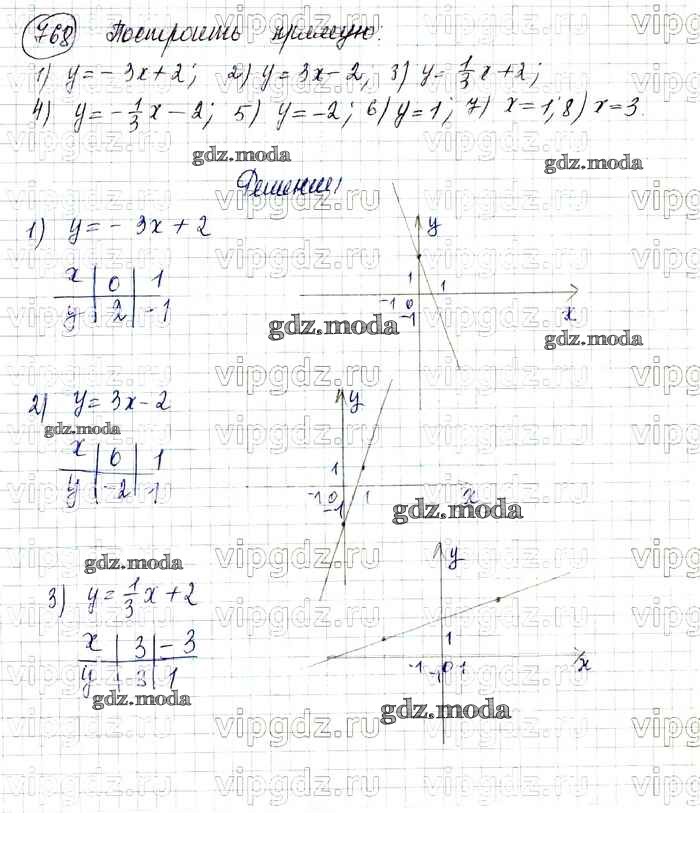 768 Построить прямую:
1) y = - 3x + 2; 2) y = 3x - 2; 3) y = 1/3 x + 2;
4) y = - 1/3 x - 2; 5) y = -2; 6) y = 1; 7) x = 1; 8) x = 3
gdz.moda
gdz.moda
Решение:
1) y = - 3x + 2
x | 0 | 1
y | 2 | -1
y
1
1
-1 0
-1
x
gdz.moda
gdz.moda
2) y = 3x - 2
gdz.moda
x | 0 | 1
y | -2 | 1
y
1
-1 0 1
-1
x
gdz.moda
gdz.moda
3) y = 1/3 x + 2
x | 3 | -3
y | 3 | 1
y
1
-1 0 1
-1
x
gdz.moda
gdz.moda
vipgdz.ru